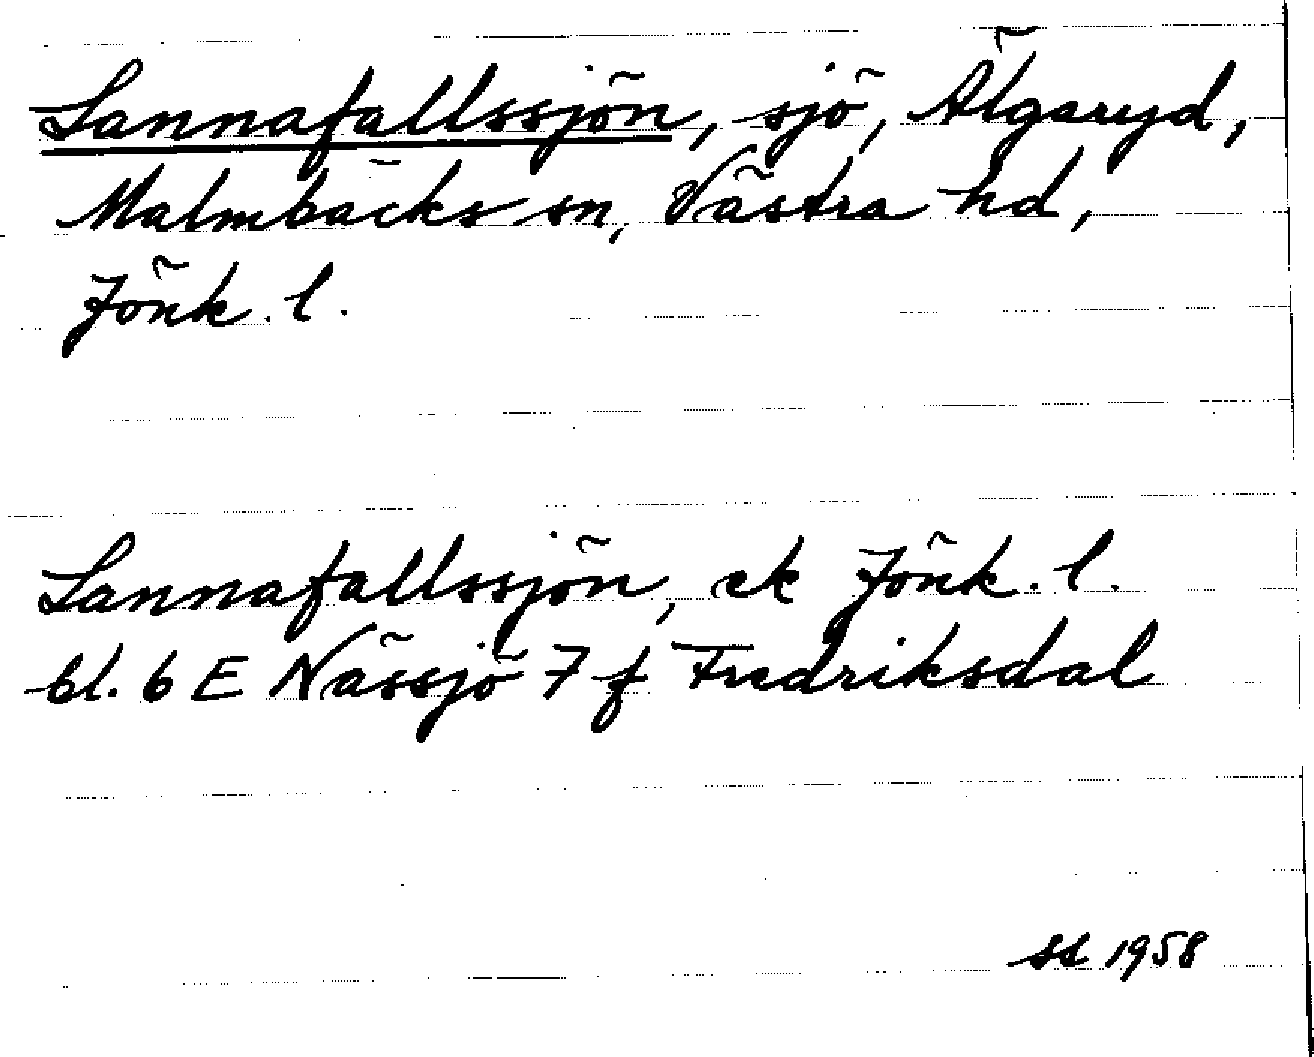 Lannafallssjön, sjö, Älgaryd,
Malmbäcks sn, Västra hd,
Jönk. l.
Lannafallssjön, ek Jönk. l.
bl. 6 E Nässjö 7 f Fredriksdal
SS 1958